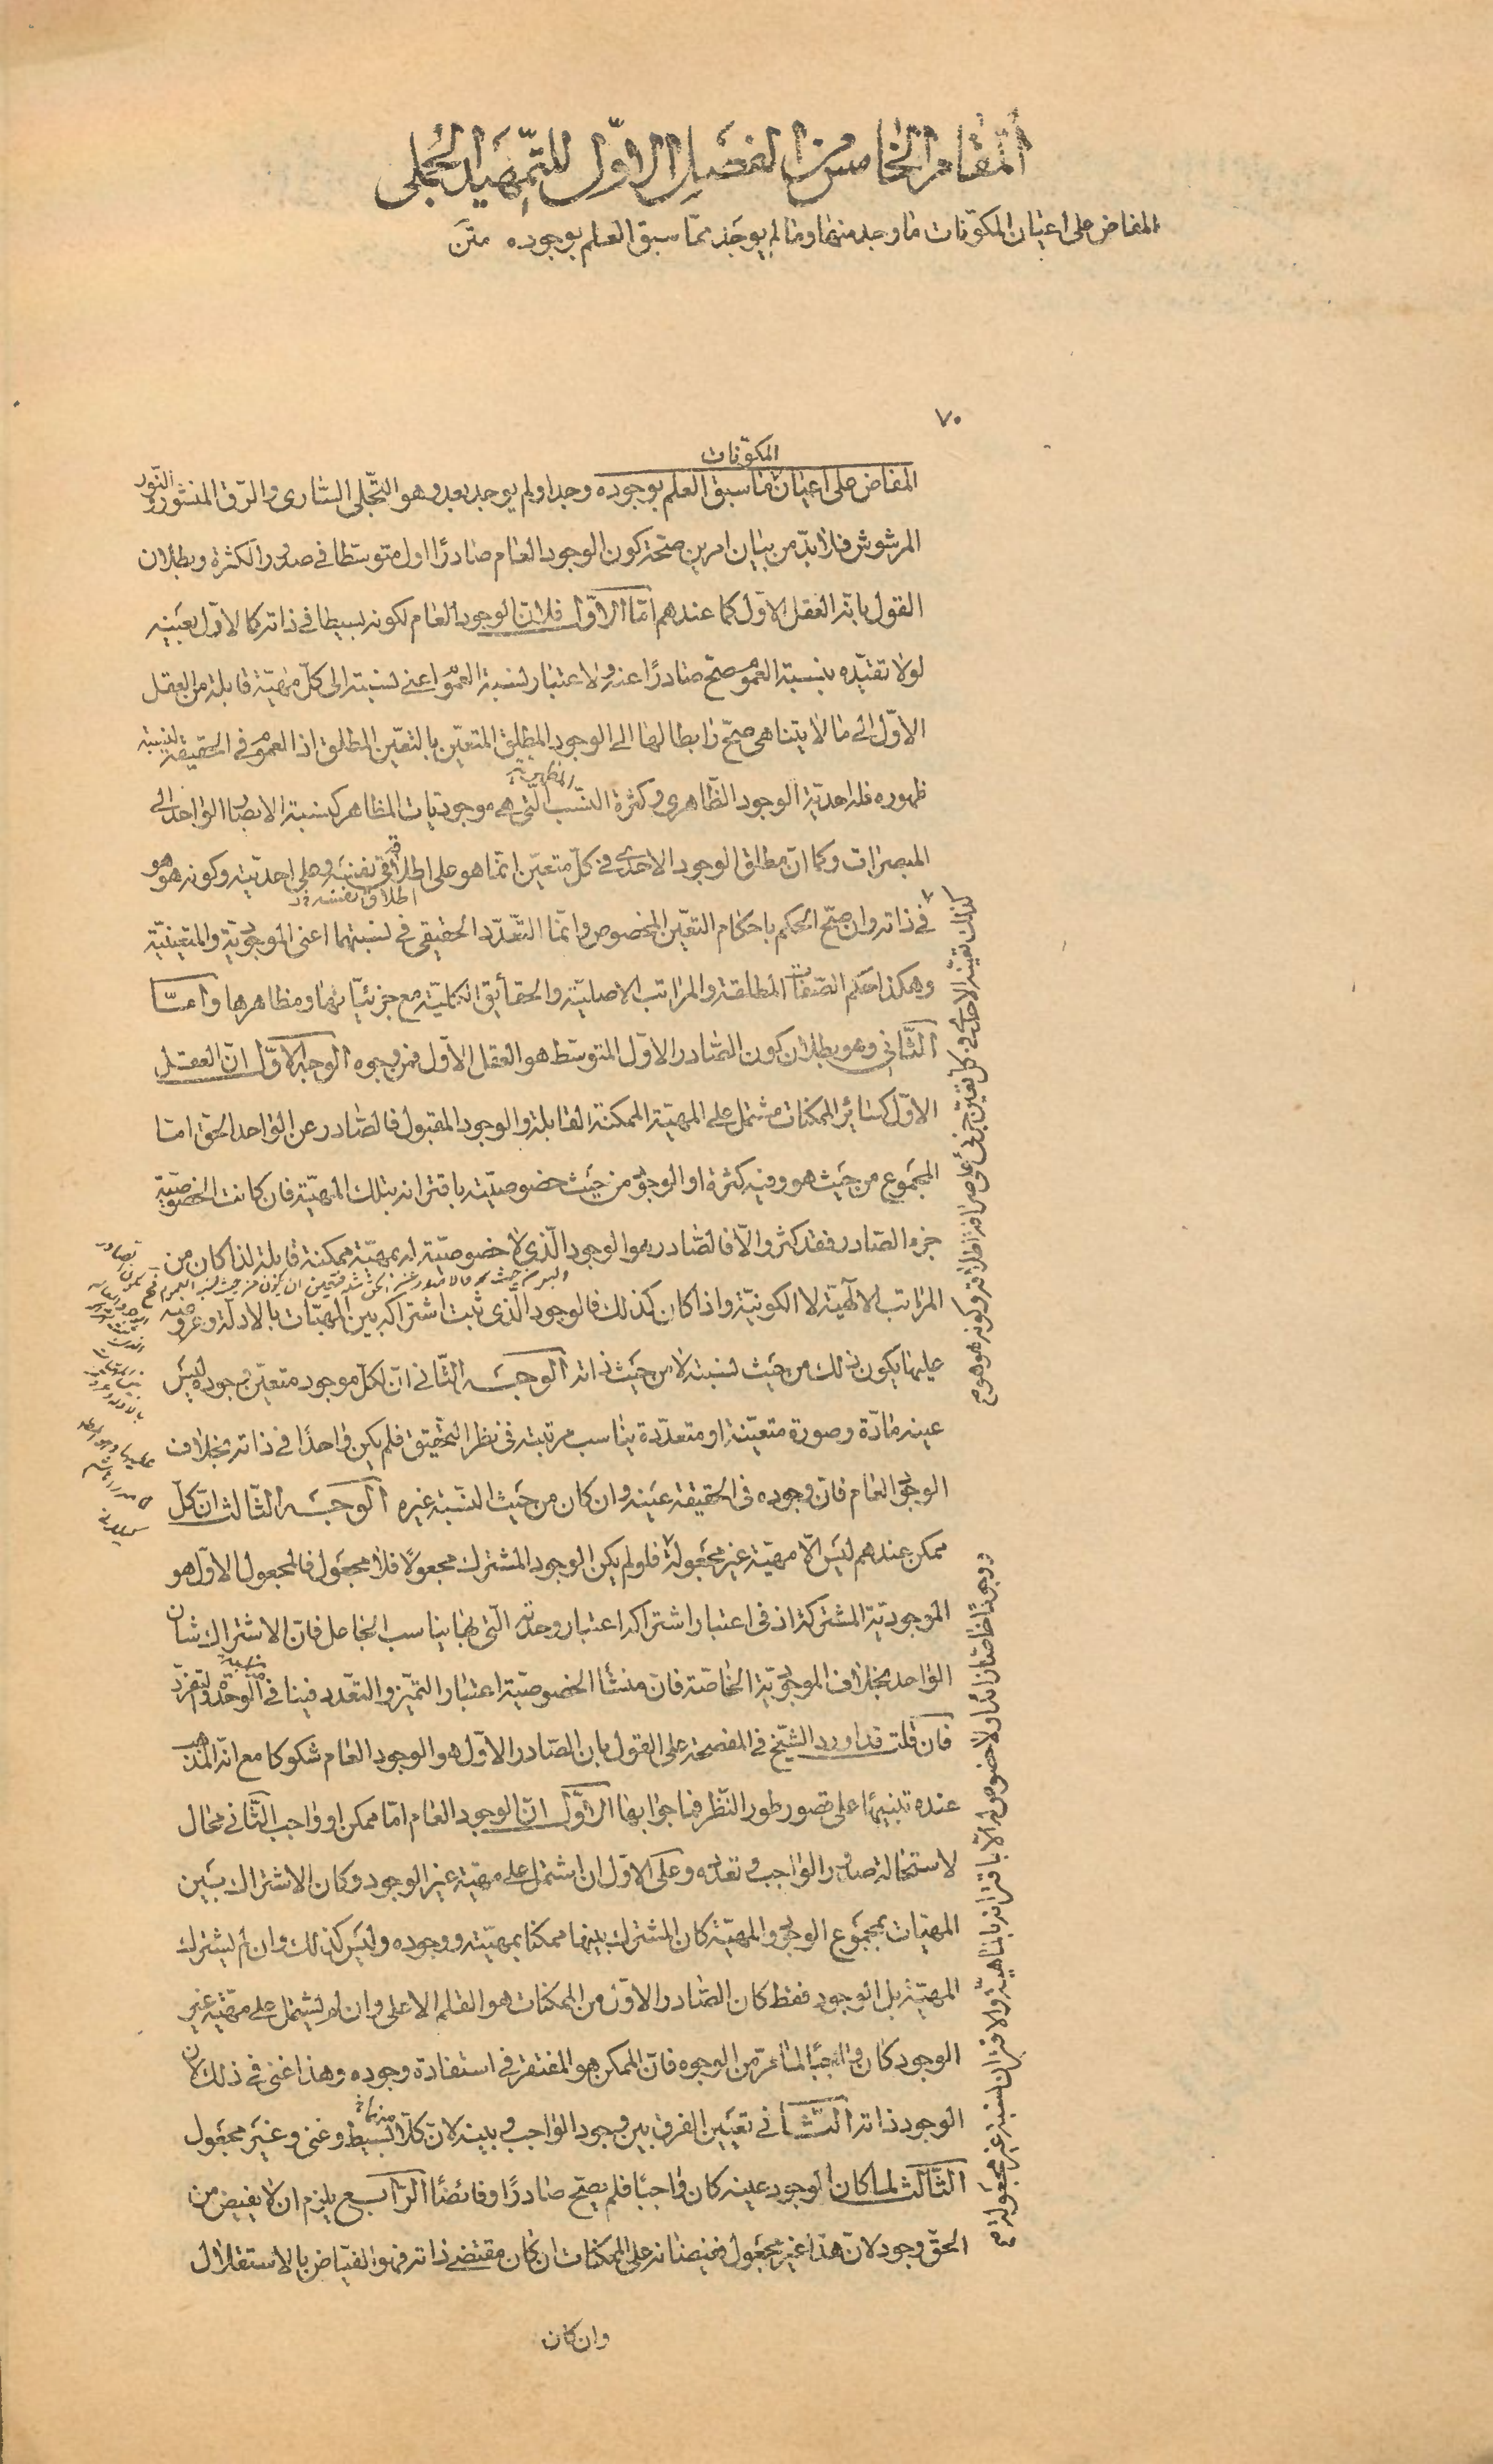 المقام الخامس من الفصل الاول للتمهيد الجملى
المفاض على اعيان المكونات ما وجد منها وما لم يوجد مما سبق العلم بوجوده متن
٧٠
المكونات
المفاض على اعيان ما سبق العلم بوجوده وجد او لم يوجد بعد وهو التجلى السارى والرق المنشور والنور
المرشوش فلا بد من بيان امرين صحة كون الوجود العام صادرًا اول متوسطا فى صدور الكثرة وبطلان
القول بانه العقل الاول كما عندهم اما الاول فلان الوجود العام لكونه بسيطا فى ذاته كالاول بعينه
لولا تقيده بنسبة العموم صح صادرًا عنه ولاعتبار نسبة العموم اعنى نسبته الى كل مهية قابلة من العقل
الاول الى ما لا يتناهى صح رابطا لها الى الوجود المطلق المتعين بالتعين المطلق اذ العموم فى الحقيقة لنسبة
ظهوره فله احدية الوجود الظاهرى وكثرة النسب التى هى موجوديات المظاهر كنسبة الابصار الواحد الى
المظهرية
المبصرات وكما ان مطلق الوجود الاحدى فى كل متعين انما هو على اطلاقه فى نفسه وعلى احديته وكونه هو هو
اطلاق نفسه
فى ذاته وان صح الحكم باحكام التعين المخصوص وانما التعدد الحقيقى فى نسبتهما اعنى الموجودية والمتعينية
وهكذا حكم الصفات المطلقة والمراتب الاصلية والحقايق الكلية مع جزئياتها ومظاهرها واما
الثانى وهو بطلان كون الصادر الاول المتوسط هو العقل الاول فمن وجوه الوجه الاول ان العقل
الاول كسائر الممكنات مشتمل على المهية الممكنة القابلة والوجود المقبول فالصادر عن الواحد الحق اما
المجموع من حيث هو وفيه كثرة او الوجود من حيث خصوصيته باقترانه بتلك المهية فان كانت الخصوصية
جزء الصادر فقد كثر والا فالصادر هو الوجود الذى لا خصوصية له بمهية ممكنة قابلة لذا كان من
المراتب الالهية لا الكونية واذا كان كذلك فالوجود الذى ثبت اشتراكه بين المهيات بالادلة وعروضه
عليها يكون ذلك من حيث نسبته لا من حيث ذاته الوجه الثانى ان لكل موجود متعين وجوده ليس
عينه مادة وصورة متعينة او متعددة يناسب مرتبته فى نظر التحقيق فلم يكن واحدًا فى ذاته بخلاف
الوجود العام فان وجوده فى الحقيقة عينه وان كان من حيث النسبة غيره الوجه الثالث ان كل
ممكن عندهم ليس الا مهية غير مجعولة فلو لم يكن الوجود المشترك مجعولًا فلا مجعول فالمجعول الاول هو
الموجودية المشتركة اذ فى اعتبار اشتراكه اعتبار وحدته التى بها يناسب الجاعل فان الاشتراك شان
الواحد بخلاف الموجودية الخاصة فان منشأ الخصوصية اعتبار التميز والتعدد فينافى الوحدة والتفرد
فان قلت قد اورد الشيخ فى المفصحة على القول بان الصادر الاول هو الوجود العام شكوكا مع انه المذهب
عنده تنبيهًا على قصور طور النظر فما جوابها الاول ان الوجود العام اما ممكن او واجب الثانى محال
لاستحالة صدور الواجب وتعدده وعلى الاول ان اشتمل على مهية غير الوجود وكان الاشتراك بين
المهيات بمجموع الوجود والمهية كان المشترك بينها ممكنا بمهيته ووجوده وليس كذلك وان لم يشترك
المهية بل الوجود فقط كان الصادر الاول من الممكنات هو القلم الاعلى وان لم يشتمل على مهية غير
الوجود كان واجبًا لما مر من الوجوه فان الممكن هو المفتقر فى استفادة وجوده وهذا غنى فى ذلك لان
الوجود ذاته الثانى تعين الفرق بين وجود الواجب وبينه لان كلا منهما بسيط وغنى وغير مجعول
الثالث لما كان الوجود عينه كان واجبًا فلم يصح صادرًا وفائضًا الرابع يلزم ان لا يفيض من
الحق وجود لان هذا غير مجعول ففيضانه على الممكنات ان كان مقتضى ذاته فهو الفياض بالاستقلال
وان كان
كذلك تعينه الاحدى فى كل تعين جزئى على صرافة اطلاقه وكونه هو هو
وجودًا خاصا زائدا ولا خصوص له الا باقترانه بالماهية والاقتران نسبة غير مجعولة